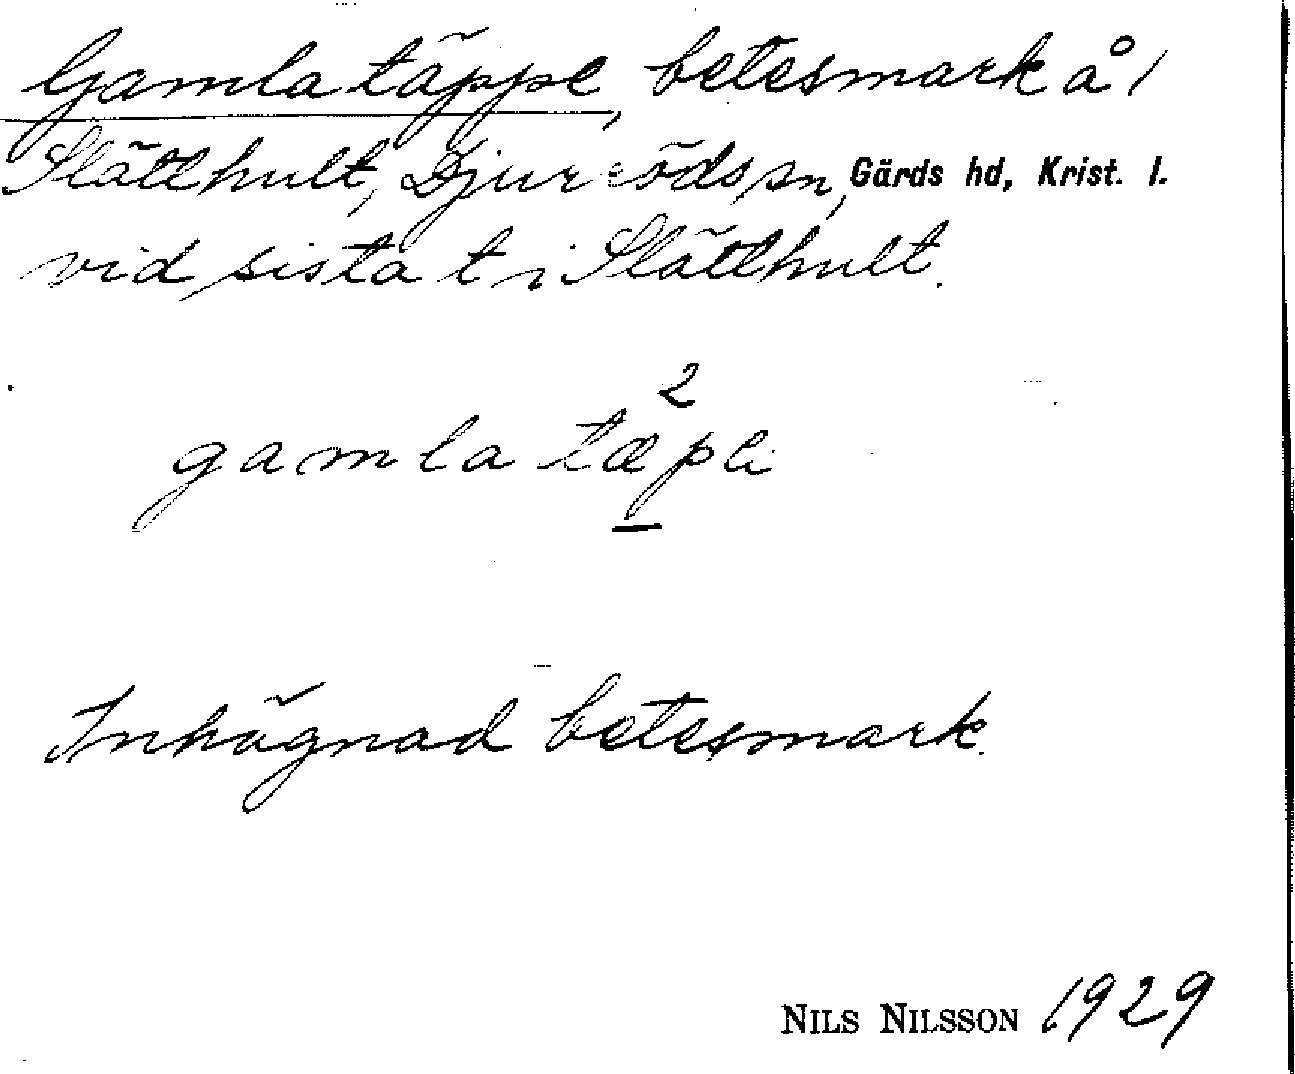 Gamla täppe, betesmark å 1
Slätthult, Djurröds sn, Gärds hd, Krist. l.
vid sista t i Slätthult.
2
gamla tæpe
Inhägnad betesmark.
NILS NILSSON 1929